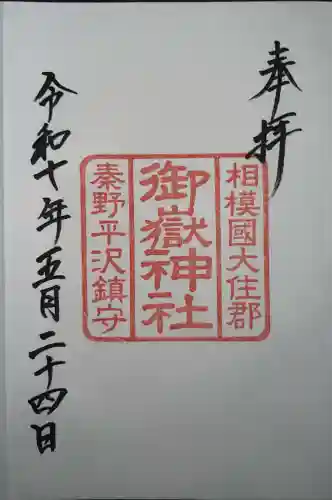 奉拝
相模國大住郡
御嶽神社
秦野平沢鎮守
令和十年五月二十四日